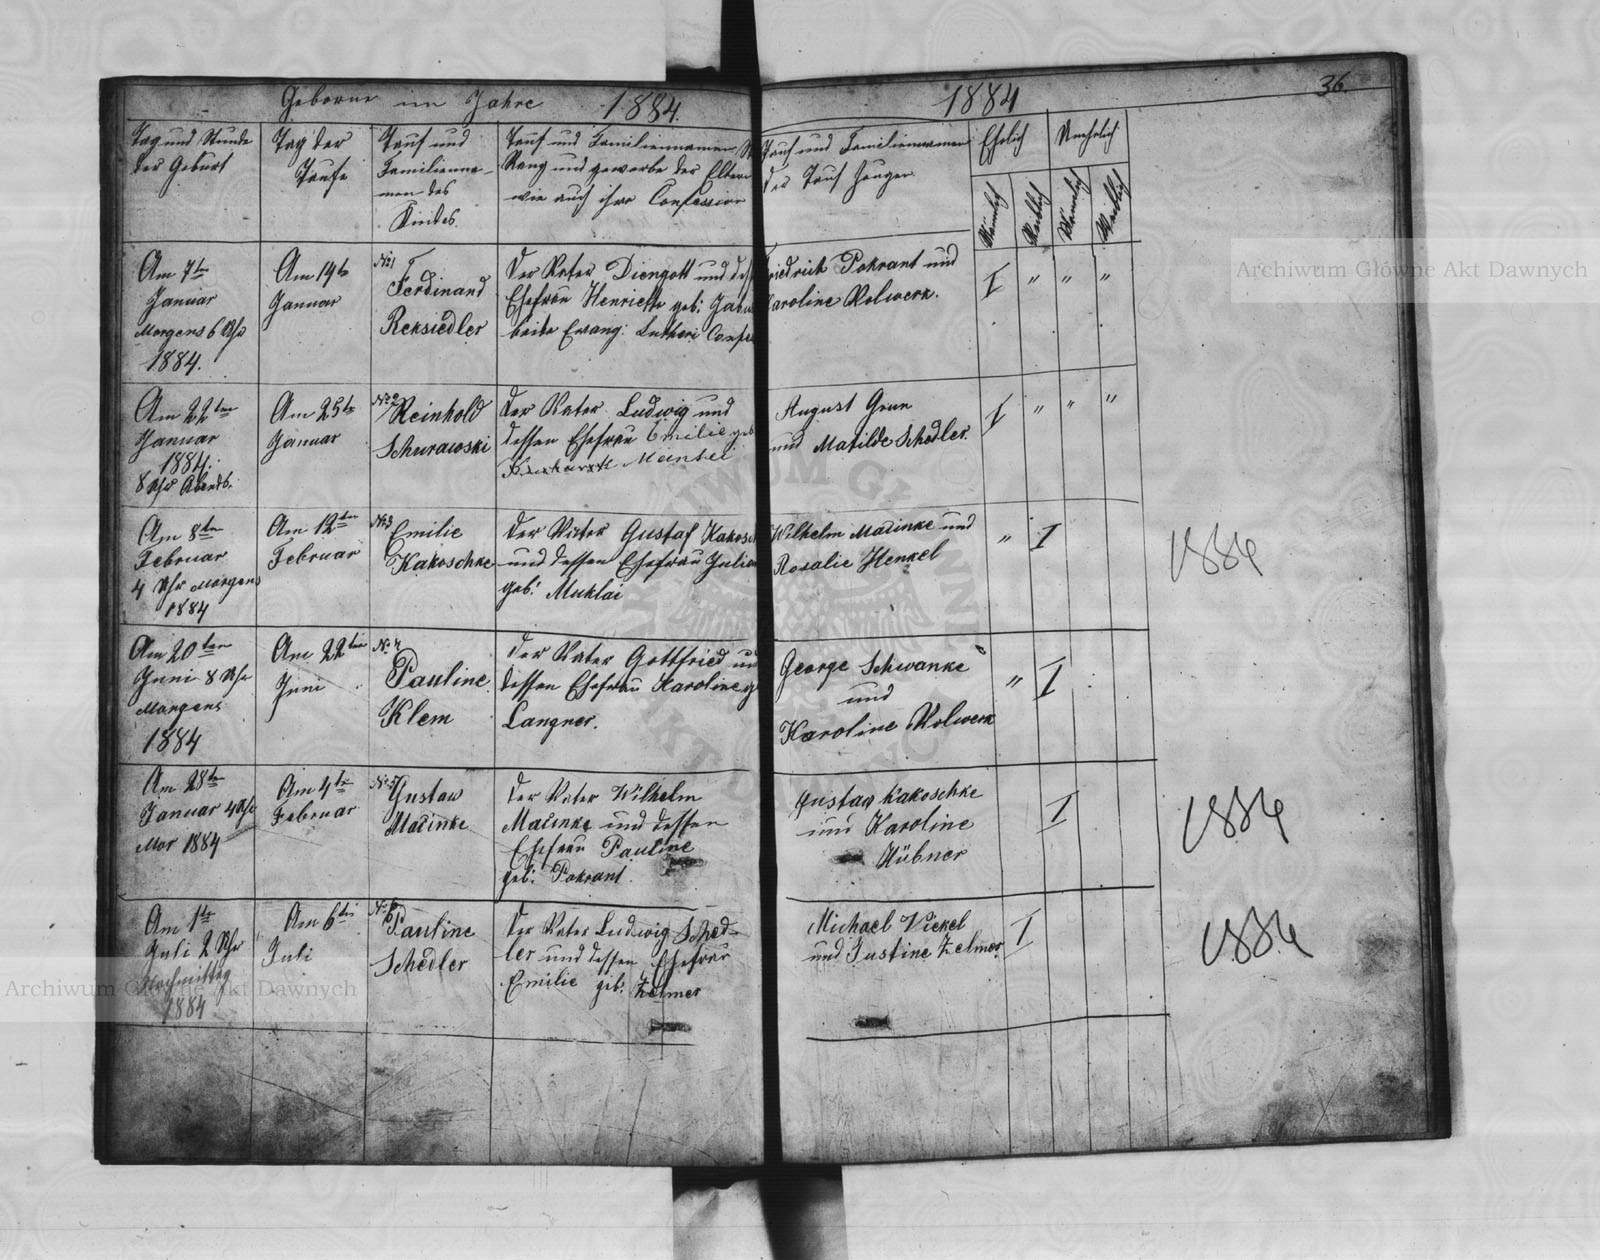 Geborne im Jahre 1884.
1884
36.
Tag und Stunde
der Geburt
Tag der
Taufe
Tauf und
Familienna-
men des
Kindes.
Tauf und Familiennamen
Rang und gewerbe der Eltern
wie auch ihre Confession
Tauf und Familiennamen
der Tauf Zeugen.
Ehelich
Unehelich
Männlich
Weiblich
Männlich
Weiblich
Am 7te
Januar
Morgens 6 Uhr
1884.
Am 14te
Januar
No 1
Ferdinand
Reksiedler
Der Vater Diengott und des
Ehefrau Henriette geb:
beide Evang: Lutheri Confe
Friedrich Pokrant und
Karoline Volwerk.
I " " "
Am 22ten
Januar
1884.
8 Uhr Abends.
Am 25te
Januar
No 2
Reinhold
Schurawski
Der Vater Ludwig und
dessen Ehefrau Emilie geb
Mantei
August Grun
und Matilde Schedler.
I " " "
Am 8ten
Februar
4 Uhr Morgens
1884
Am 12ten
Februar
No 3
Emilie
Kakoschke
Der Vater Gustaf Kakosch
und dessen Ehefrau Julia
geb: Muklai
Wilhelm Matinke und
Rosalie Henkel
" I
1884
Am 20ten
Juni 8 Uhr
Morgens
1884
Am 22ten
Juni
No 4
Pauline
Klem
Der Vater Gottfried und
dessen Ehefrau Karoline g
Langner.
George Schwanke
und
Karoline Volwerk
" I
Am 28te
Januar 4 Uhr
Mor 1884
Am 4te
Februar
No 5
Gustaw
Matinke
Der Vater Wilhelm
Matinke und dessen
Ehefrau Pauline
geb: Pokrant
Gustaw Kakoschke
und Karoline
Hübner
I
1884
Am 1te
Juli 2 Uhr
Nachmittag
1884
Am 6te
Juli
No 6
Pauline
Schedler
Der Vater Ludwig Sched-
ler und dessen Ehefrau
Emilie geb: Zelmer
Michael Vickel
und Justine Zelmer.
I
1884
Archiwum Główne Akt Dawnych
Archiwum Główne Akt Dawnych